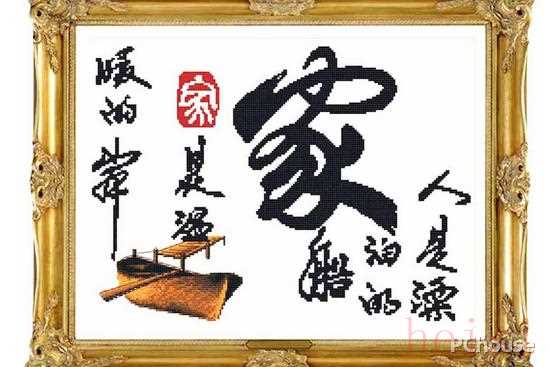 家
人是漂
泊的
船
家
是温
暖的岸
PChouse